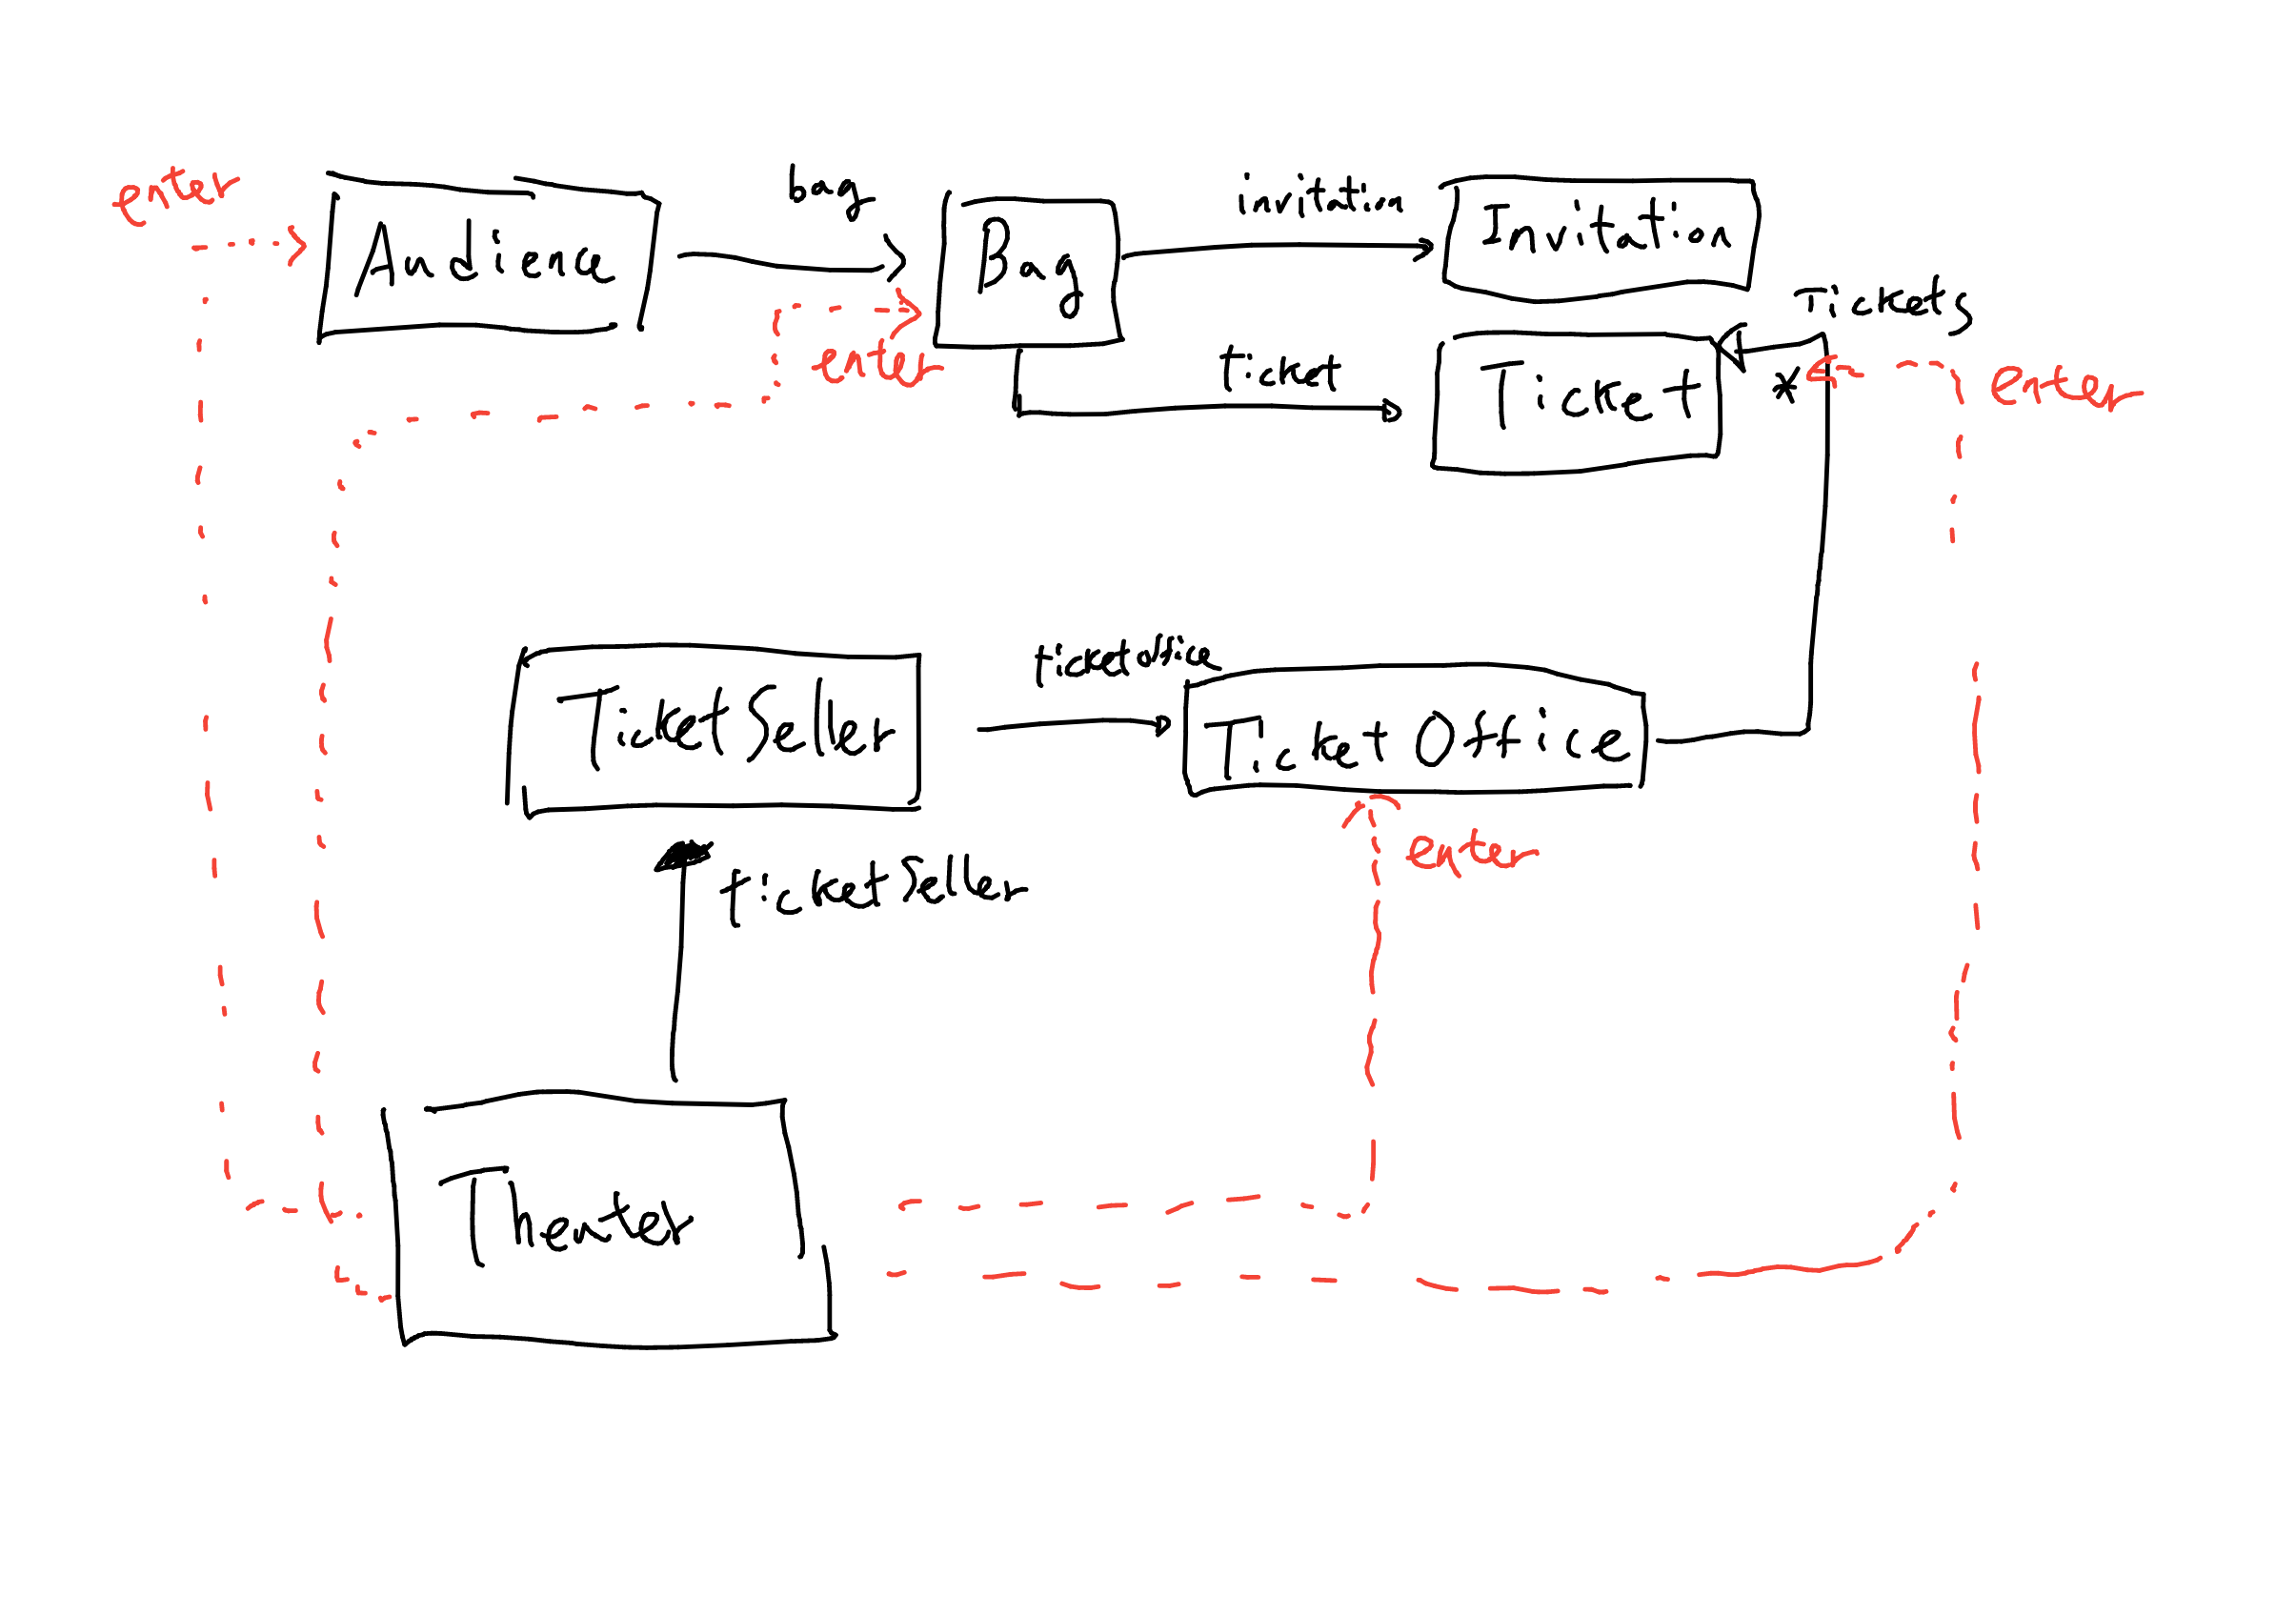 enter
Audience
bag
Bag
invitation
Invitation
enter
ticket
Ticket
Tickets
*
enter
TicketSeller
ticketoffice
TicketOffice
ticketSeller
enter
Theater